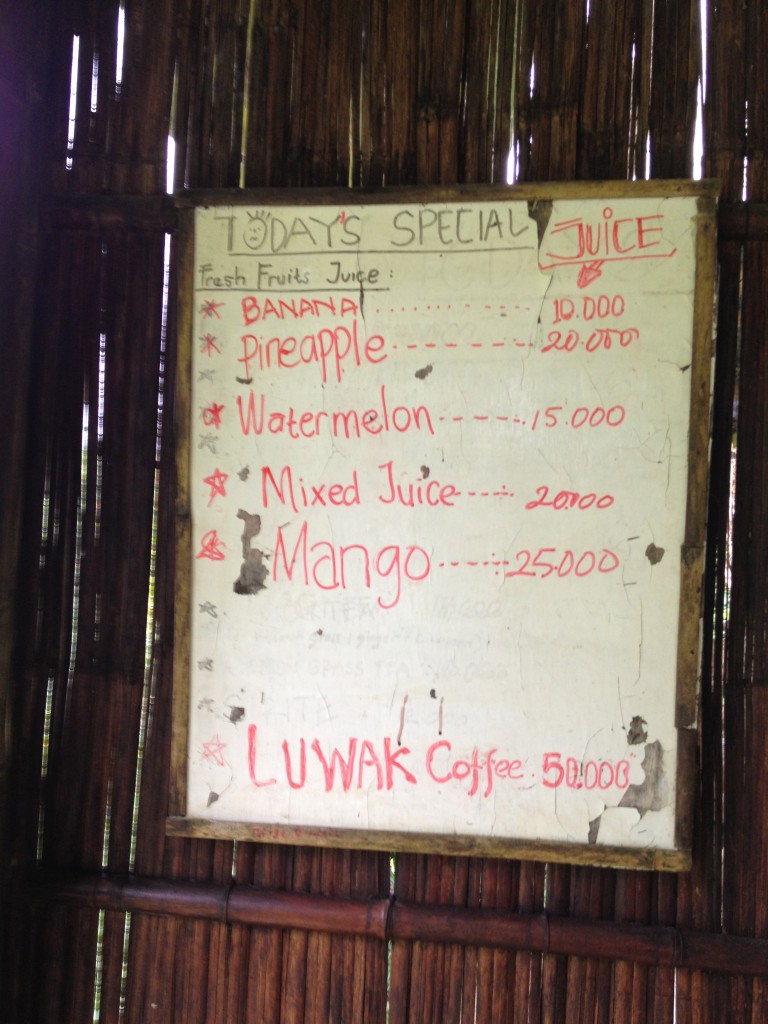 TODAY'S SPECIAL JUICE
Fresh Fruits Juice :
BANANA ............ 10.000
Pineapple --------- 20.000
Watermelon ------ 15.000
Mixed Juice ---- 20.000
Mango ----- 25.000
LUWAK Coffee. 50.000